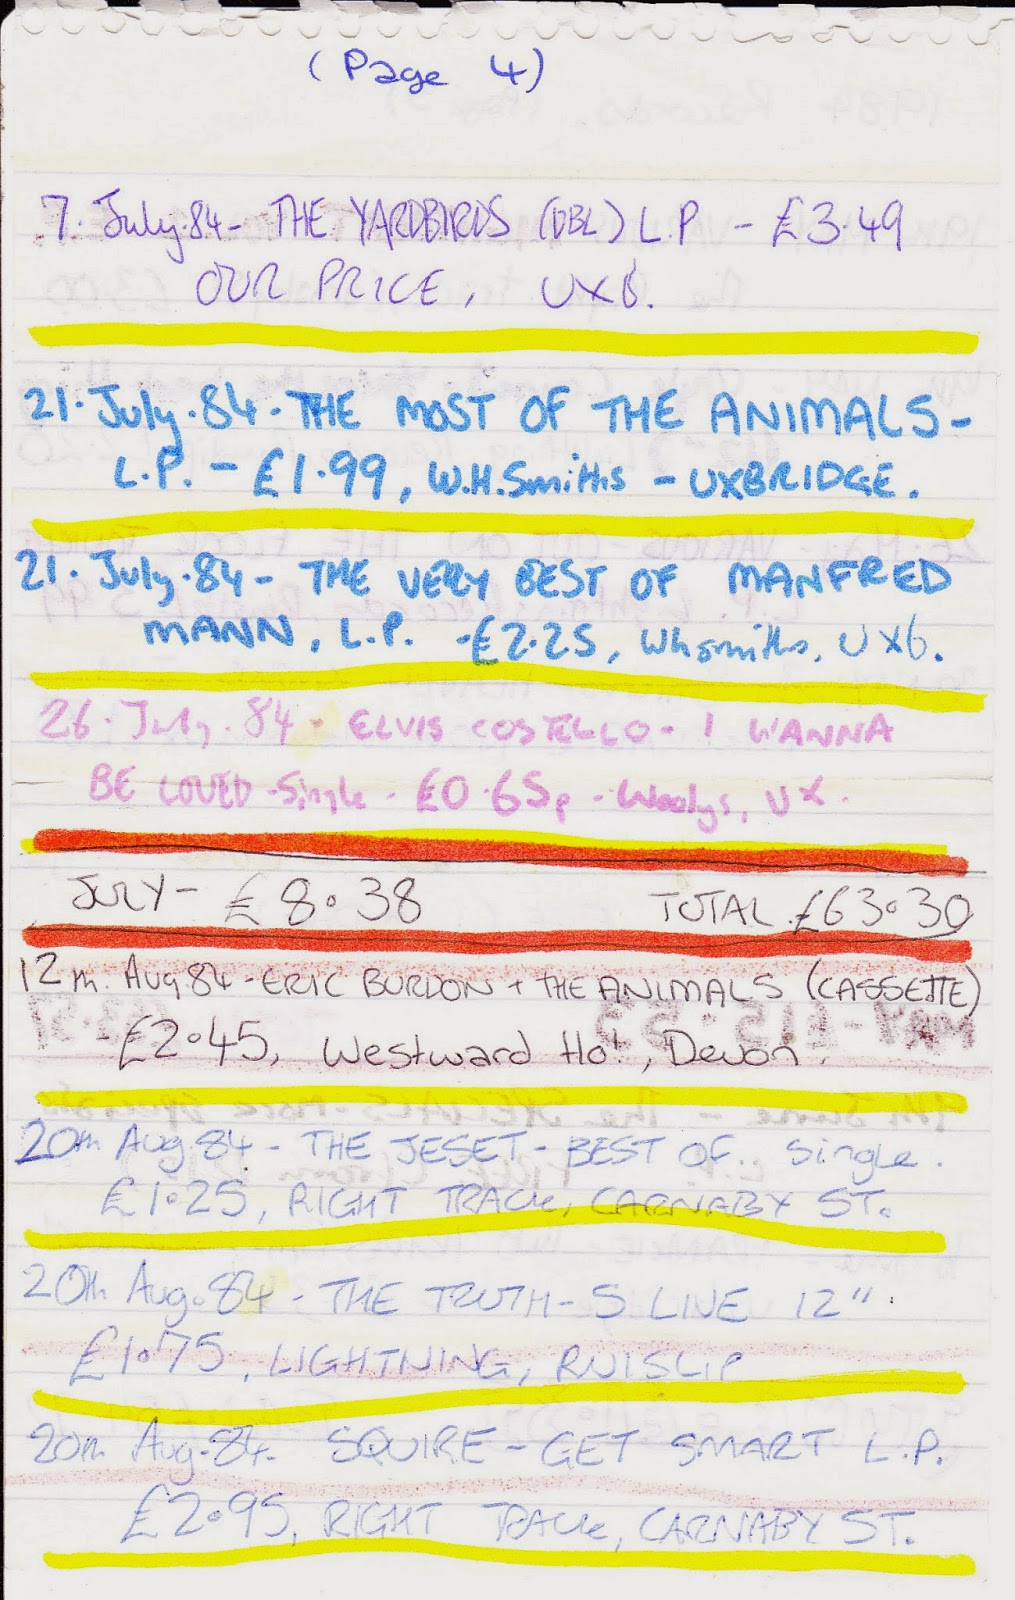 (Page 4)
7. July.84- THE YARDBIRDS (DBL) L.P - £3.49
OUR PRICE, UXB.
21. July.84-THE MOST OF THE ANIMALS-
L.P. - £1.99, W.H.Smiths - UXBRIDGE.
21. July.84- THE VERY BEST OF MANFRED
MANN, L.P. -£2.25, Whsmiths, UXB.
26. July.84- ELVIS COSTELLO- I WANNA
BE LOVED-Single - £0.65p - Woolys, UX.
JULY- £8.38 TOTAL £63.30
12th. Aug 84-ERIC BURDON + THE ANIMALS (CASSETTE)
-£2.45, Westward Ho!, Devon.
20th Aug.84- THE JESET- BEST OF.. Single.
£1.25, RIGHT TRACK, CARNABY ST.
20th Aug.84- THE TRUTH-5 LIVE 12".
£1.75, LIGHTNING, RUISLIP
20th Aug.84. SQUIRE-GET SMART L.P.
£2.95, RIGHT TRACK, CARNABY ST.